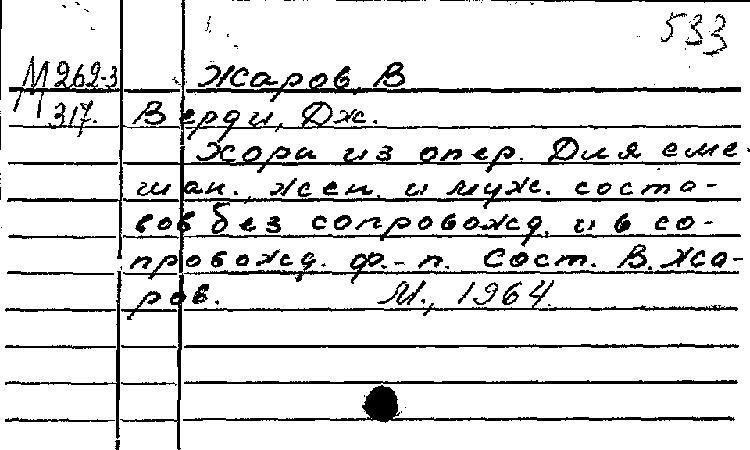 533
М262-3 Жаров, В
317. Верди, Дж.
Хоры из опер. Для сме-
шан., жен. и муж. соста-
вов без сопровожд. и в со-
провожд. ф.-п. Сост. В. Жа-
ров. М., 1964.